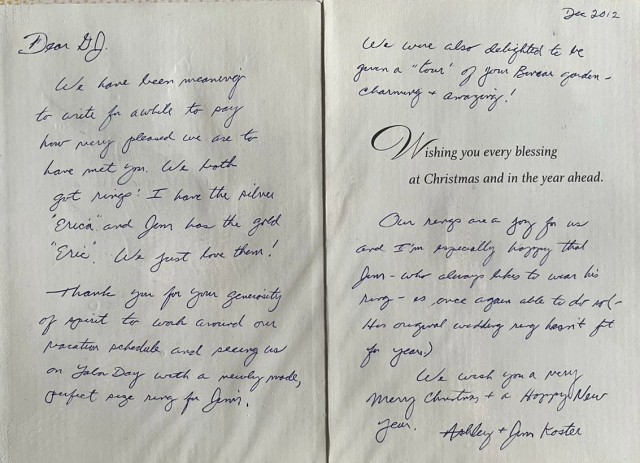 Dear G.J.
We have been meaning
to write for awhile to say
how very pleased we are to
have met you. We both
got rings! I have the silver
"Erica" and Jim has the gold
"Eric". We just love them!
Thank you for your generosity
of spirit to work around our
vacation schedule and seeing us
on Labor Day with a newly made,
perfect size ring for Jim.
Dec 2012
We were also delighted to be
given a "tour" of your garden -
charming + amazing!
Wishing you every blessing
at Christmas and in the year ahead.
Our rings are a joy for us
and I'm especially happy that
Jim - who always likes to wear his
ring - is once again able to do so! -
His original wedding ring hasn't fit
for years.)
We wish you a very
Merry Christmas + a Happy New
Year. Ashley + Jim Koster